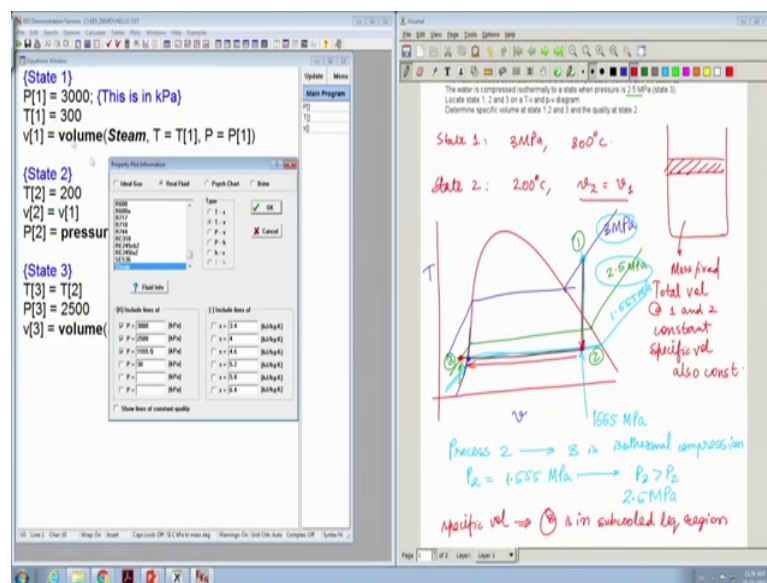 EES Demonstration Version: C:\EES_DEMO\HELLO.TXT
File Edit Search Options Calculate Tables Plots Windows Help Examples
Equations Window
{State 1}
P[1] = 3000; {This is in kPa}
T[1] = 300
v[1] = volume(Steam, T = T[1], P = P[1])
{State 2}
T[2] = 200
v[2] = v[1]
P[2] = pressur
{State 3}
T[3] = T[2]
P[3] = 2500
v[3] = volume(
Update Menu
Main Program
P[]
T[]
v[]
Property Plot Information
Ideal Gas Real Fluid Psych Chart Brine
R600
R600a
R717
R718
R744
Steam
Type
T - s
T - v
P - v
P - h
h - s
OK
Cancel
? Fluid Info
Include lines of
P = 3000 [kPa]
P = 2500 [kPa]
P = 1555.5 [kPa]
P = 30 [kPa]
P = [kPa]
P = [kPa]
Include lines of
s = 3.4 [kJ/kg-K]
s = 4 [kJ/kg-K]
s = 4.6 [kJ/kg-K]
s = 5.2 [kJ/kg-K]
s = 5.8 [kJ/kg-K]
s = 6.4 [kJ/kg-K]
Show lines of constant quality
Line 1 Char 10 Wrap On Insert Caps Lock Off SI C kPa kJ mass deg Warnings: On Unit Chk: Auto Complex: Off
Xournal
File Edit View Page Tools Options Help
The water is compressed isothermally to a state when pressure is 2.5 MPa (state 3).
Locate state 1, 2 and 3 on a T-v and p-v diagram
Determine specific volume at state 1,2 and 3 and the quality at state 2.
State 1: 3MPa, 300°C.
State 2: 200°C, v2 = v1
T
1
3MPa
2.5MPa
1.555MPa
3
2
v
1555 MPa
Mass fixed
Total vol
@ 1 and 2
constant
specific vol
also const.
Process 2 → 3 is isothermal compression
P2 = 1.555 MPa → P3 > P2
2.5MPa
specific vol → 3 is in subcooled liq region
Page 1 of 2 Layer: Layer 1